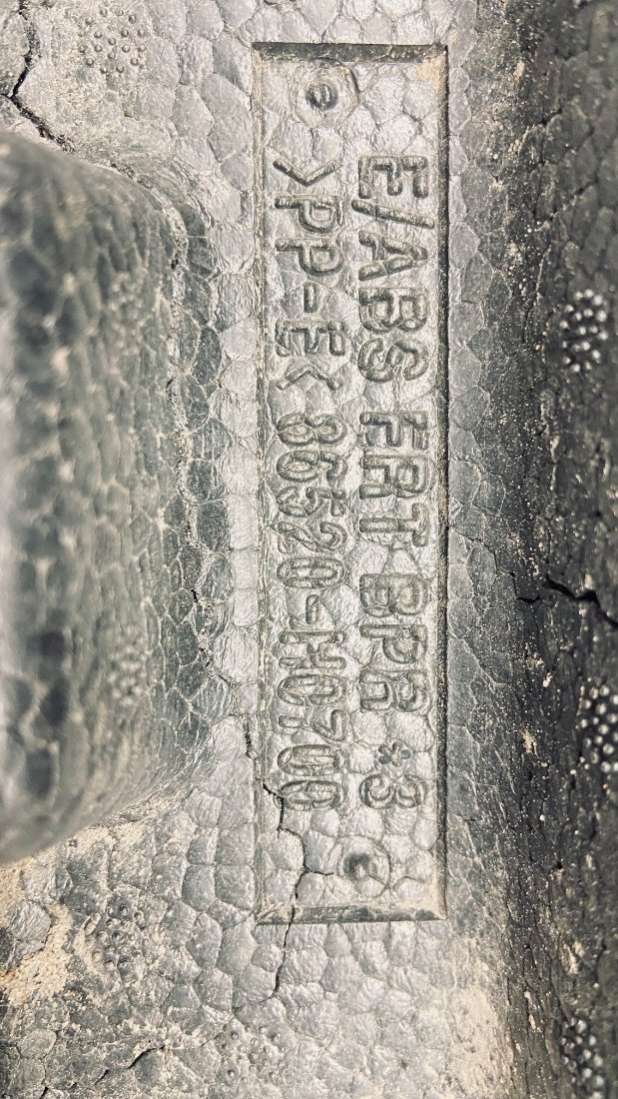 E/ABS FRT BPR *3
>PP-E< 86520-H0700